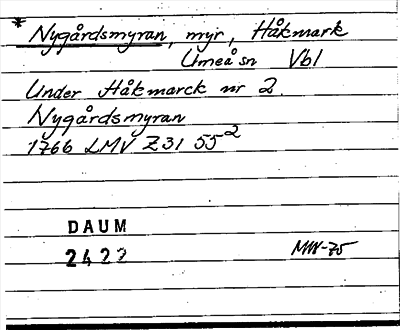 * Nygårdsmyran, myr, Håkmark
Umeå sn Vbl
Under Håkmarck nr 2.
Nygårdsmyran
1766 LMV Z31 55²
DAUM
2422
MW-75